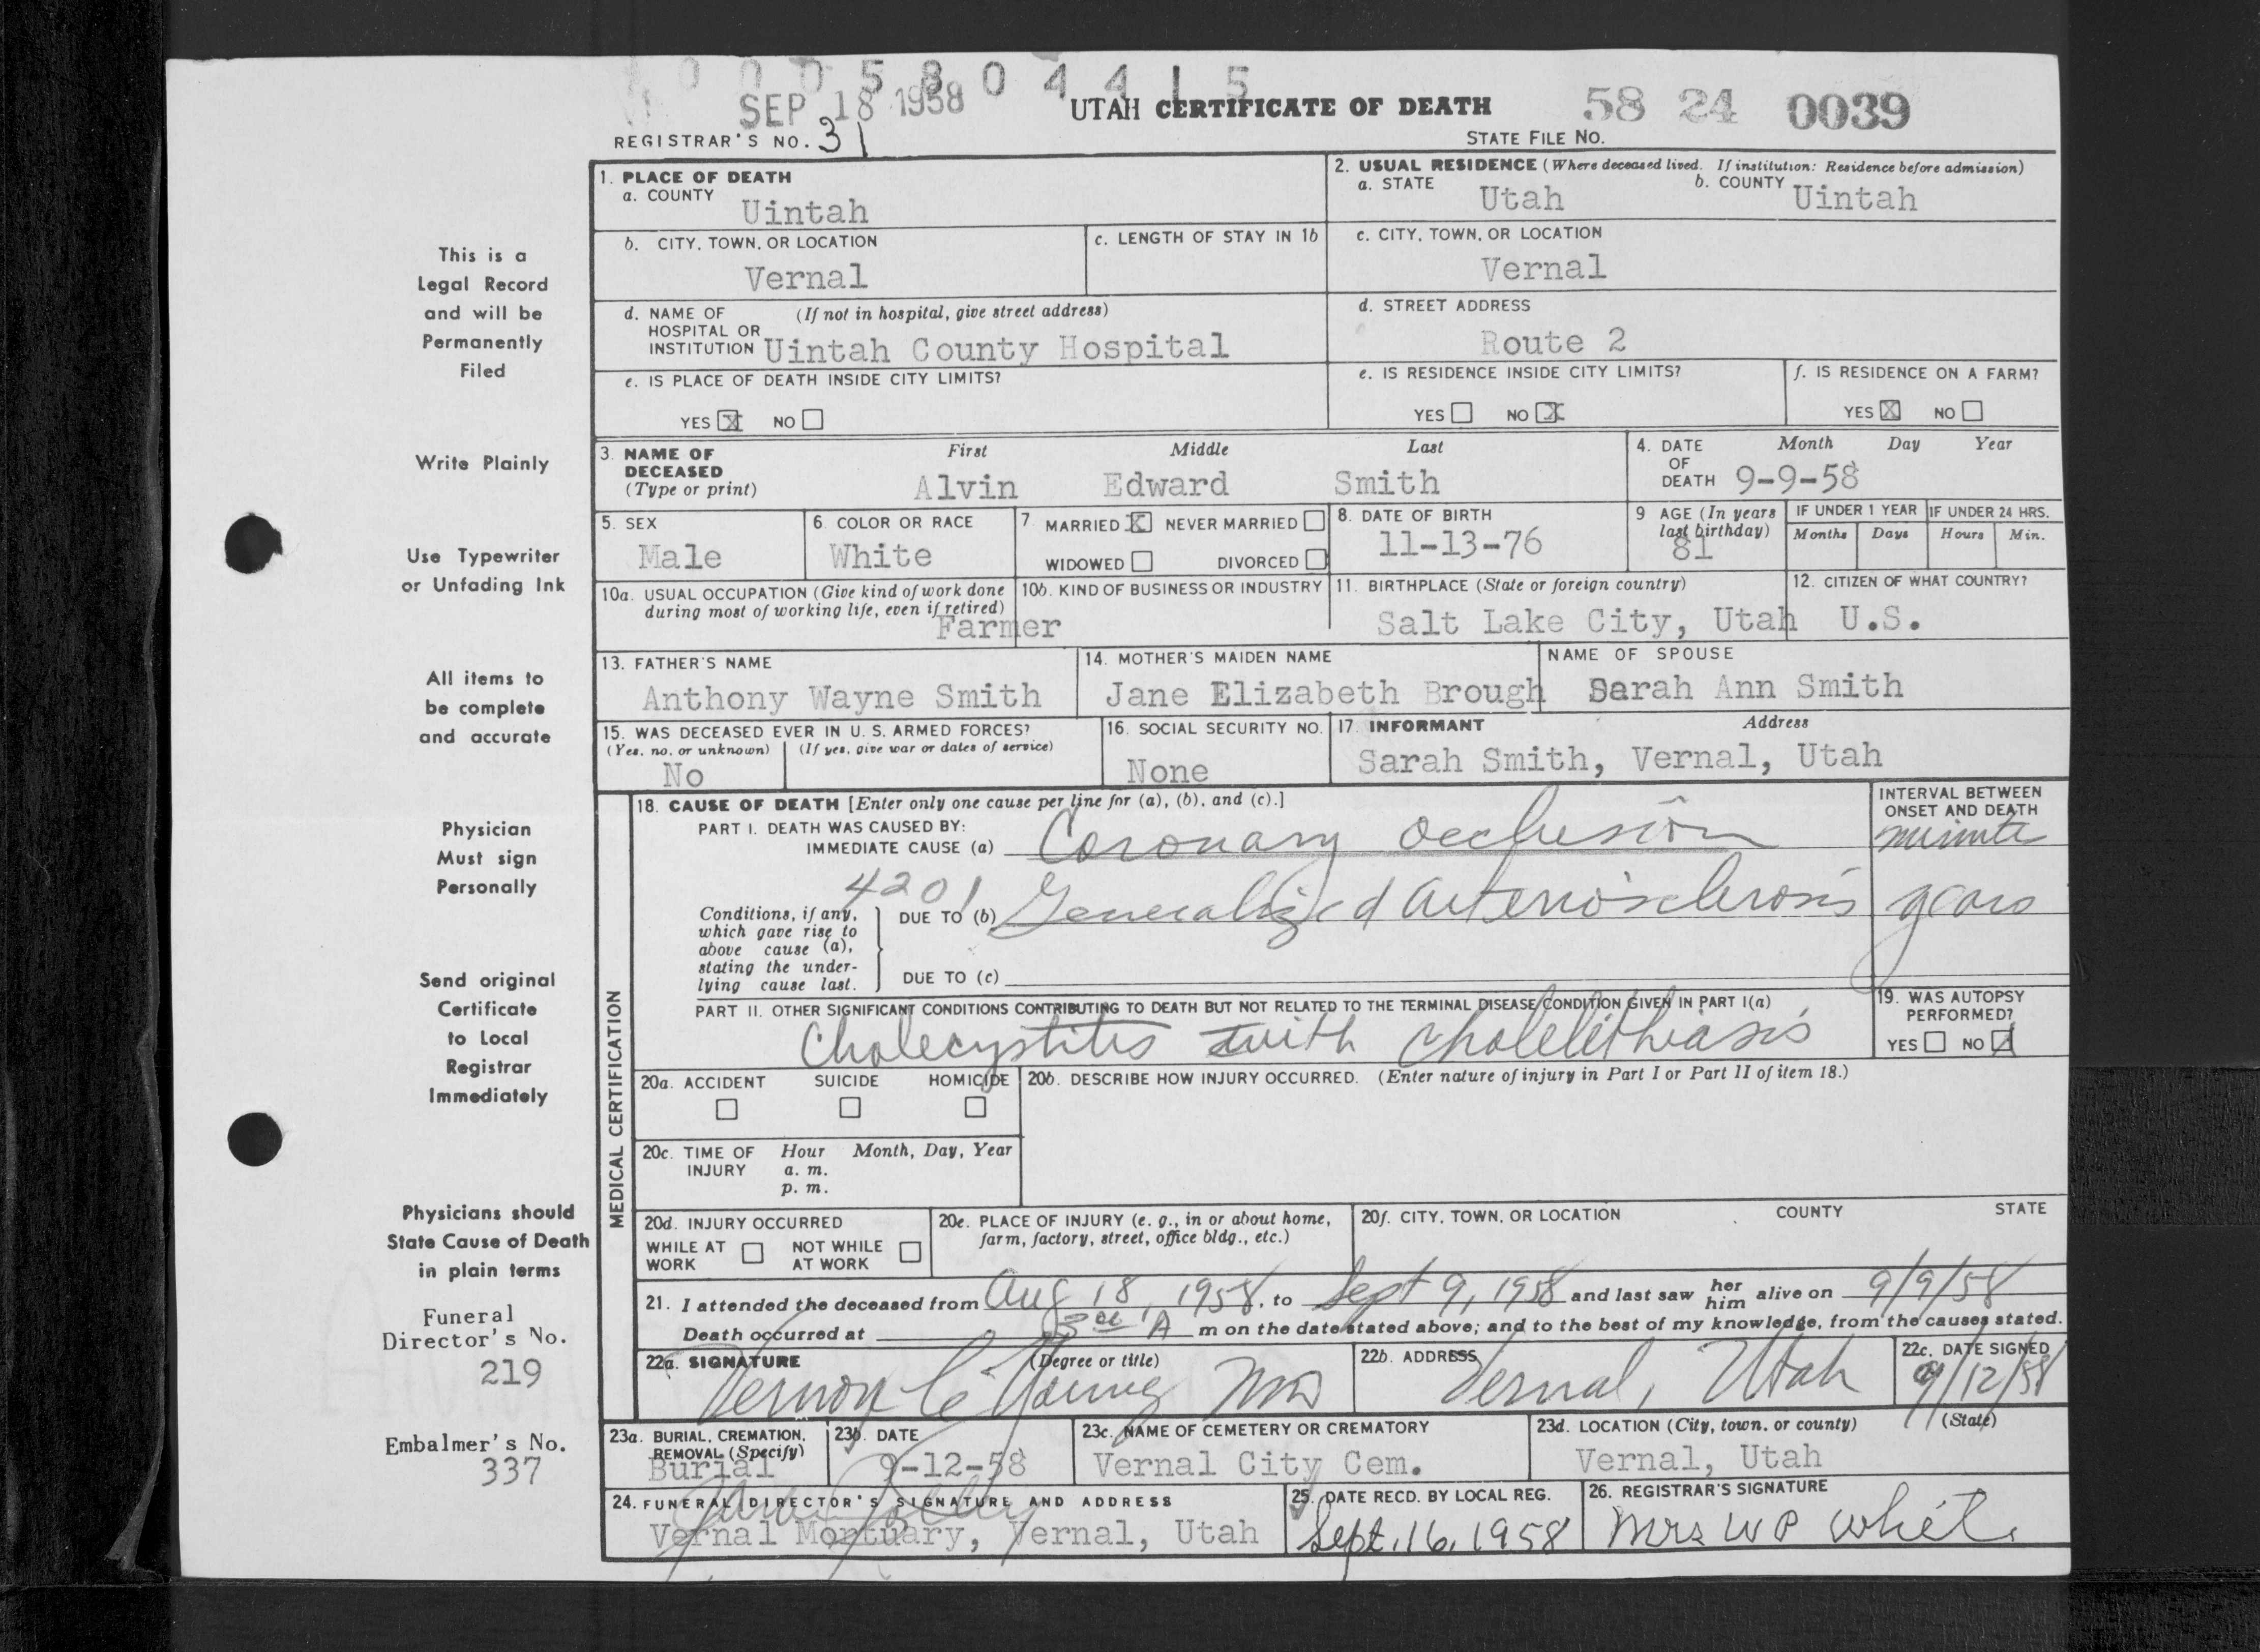 0 0 0 5 8 0 4 4 1 5
SEP 18 1958 UTAH CERTIFICATE OF DEATH 58 24 0039
REGISTRAR'S NO. 31 STATE FILE NO.
1. PLACE OF DEATH
a. COUNTY Uintah
2. USUAL RESIDENCE (Where deceased lived. If institution: Residence before admission)
a. STATE Utah b. COUNTY Uintah
b. CITY, TOWN, OR LOCATION Vernal
c. LENGTH OF STAY IN 1b
c. CITY, TOWN, OR LOCATION Vernal
d. NAME OF HOSPITAL OR INSTITUTION (If not in hospital, give street address) Uintah County Hospital
d. STREET ADDRESS Route 2
e. IS PLACE OF DEATH INSIDE CITY LIMITS?
YES X NO
e. IS RESIDENCE INSIDE CITY LIMITS?
YES NO X
f. IS RESIDENCE ON A FARM?
YES X NO
3. NAME OF DECEASED (Type or print)
First Middle Last
Alvin Edward Smith
4. DATE OF DEATH Month Day Year
9-9-58
5. SEX Male
6. COLOR OR RACE White
7. MARRIED X NEVER MARRIED
WIDOWED DIVORCED
8. DATE OF BIRTH 11-13-76
9 AGE (In years last birthday) 81
IF UNDER 1 YEAR Months Days
IF UNDER 24 HRS. Hours Min.
10a. USUAL OCCUPATION (Give kind of work done during most of working life, even if retired) Farmer
10b. KIND OF BUSINESS OR INDUSTRY
11. BIRTHPLACE (State or foreign country) Salt Lake City, Utah
12. CITIZEN OF WHAT COUNTRY? U.S.
13. FATHER'S NAME Anthony Wayne Smith
14. MOTHER'S MAIDEN NAME Jane Elizabeth Brough
NAME OF SPOUSE Sarah Ann Smith
15. WAS DECEASED EVER IN U. S. ARMED FORCES?
(Yes, no, or unknown) (If yes, give war or dates of service)
No
16. SOCIAL SECURITY NO. None
17. INFORMANT Address
Sarah Smith, Vernal, Utah
MEDICAL CERTIFICATION
18. CAUSE OF DEATH [Enter only one cause per line for (a), (b), and (c).]
INTERVAL BETWEEN ONSET AND DEATH
PART I. DEATH WAS CAUSED BY:
IMMEDIATE CAUSE (a) Coronary occlusion minute
4201
Conditions, if any, which gave rise to above cause (a), stating the underlying cause last.
DUE TO (b) Generalized arteriosclerosis years
DUE TO (c)
PART II. OTHER SIGNIFICANT CONDITIONS CONTRIBUTING TO DEATH BUT NOT RELATED TO THE TERMINAL DISEASE CONDITION GIVEN IN PART I(a)
Cholecystitis with cholelithiasis
19. WAS AUTOPSY PERFORMED?
YES NO X
20a. ACCIDENT SUICIDE HOMICIDE
20b. DESCRIBE HOW INJURY OCCURRED. (Enter nature of injury in Part I or Part II of item 18.)
20c. TIME OF INJURY Hour Month, Day, Year
a. m.
p. m.
20d. INJURY OCCURRED
WHILE AT WORK NOT WHILE AT WORK
20e. PLACE OF INJURY (e. g., in or about home, farm, factory, street, office bldg., etc.)
20f. CITY, TOWN, OR LOCATION COUNTY STATE
21. I attended the deceased from Aug 18, 1958, to Sept 9, 1958 and last saw her him alive on 9/9/58
Death occurred at 5 00 A m on the date stated above; and to the best of my knowledge, from the causes stated.
22a. SIGNATURE (Degree or title)
Vernon C Young MD
22b. ADDRESS Vernal, Utah
22c. DATE SIGNED 9/12/58
23a. BURIAL, CREMATION, REMOVAL (Specify) Burial
23b. DATE 9-12-58
23c. NAME OF CEMETERY OR CREMATORY Vernal City Cem.
23d. LOCATION (City, town, or county) (State)
Vernal, Utah
24. FUNERAL DIRECTOR'S SIGNATURE AND ADDRESS
Vernal Mortuary, Vernal, Utah
25. DATE RECD. BY LOCAL REG. Sept. 16, 1958
26. REGISTRAR'S SIGNATURE Mrs W P White
This is a
Legal Record
and will be
Permanently
Filed
Write Plainly
Use Typewriter
or Unfading Ink
All items to
be complete
and accurate
Physician
Must sign
Personally
Send original
Certificate
to Local
Registrar
Immediately
Physicians should
State Cause of Death
in plain terms
Funeral
Director's No.
219
Embalmer's No.
337